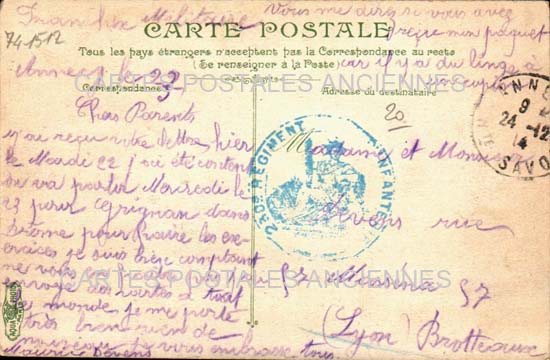 Franchise Militaire
Vous me direz si vous avez
reçu mon paquet
car il y a du linge à
74-1512
CARTE POSTALE
Tous les pays étrangers n'acceptent pas la Correspondance au recto
(Se renseigner à la Poste)
Annecy le 23
CARTES POSTALES ANCIENNES
Correspondance
Adresse du destinataire
20
Chers Parents
j'ai reçu votre lettre hier
le Mardi 22 j'ai été content
on va partir Mercredi le
23 pour Grignan dans
drome pour faire les
je suis
ne vous
cartes à tout
le monde je me porte
très bien rien de
vous embrasse tous
Maurice
230e REGIMENT
INFANTERIE
ANNECY
9
24-12
14
SAVOIE
Madame et Monsieur
rue
57 Masséna 57
(Lyon) Brotteaux
CARTES POSTALES ANCIENNES